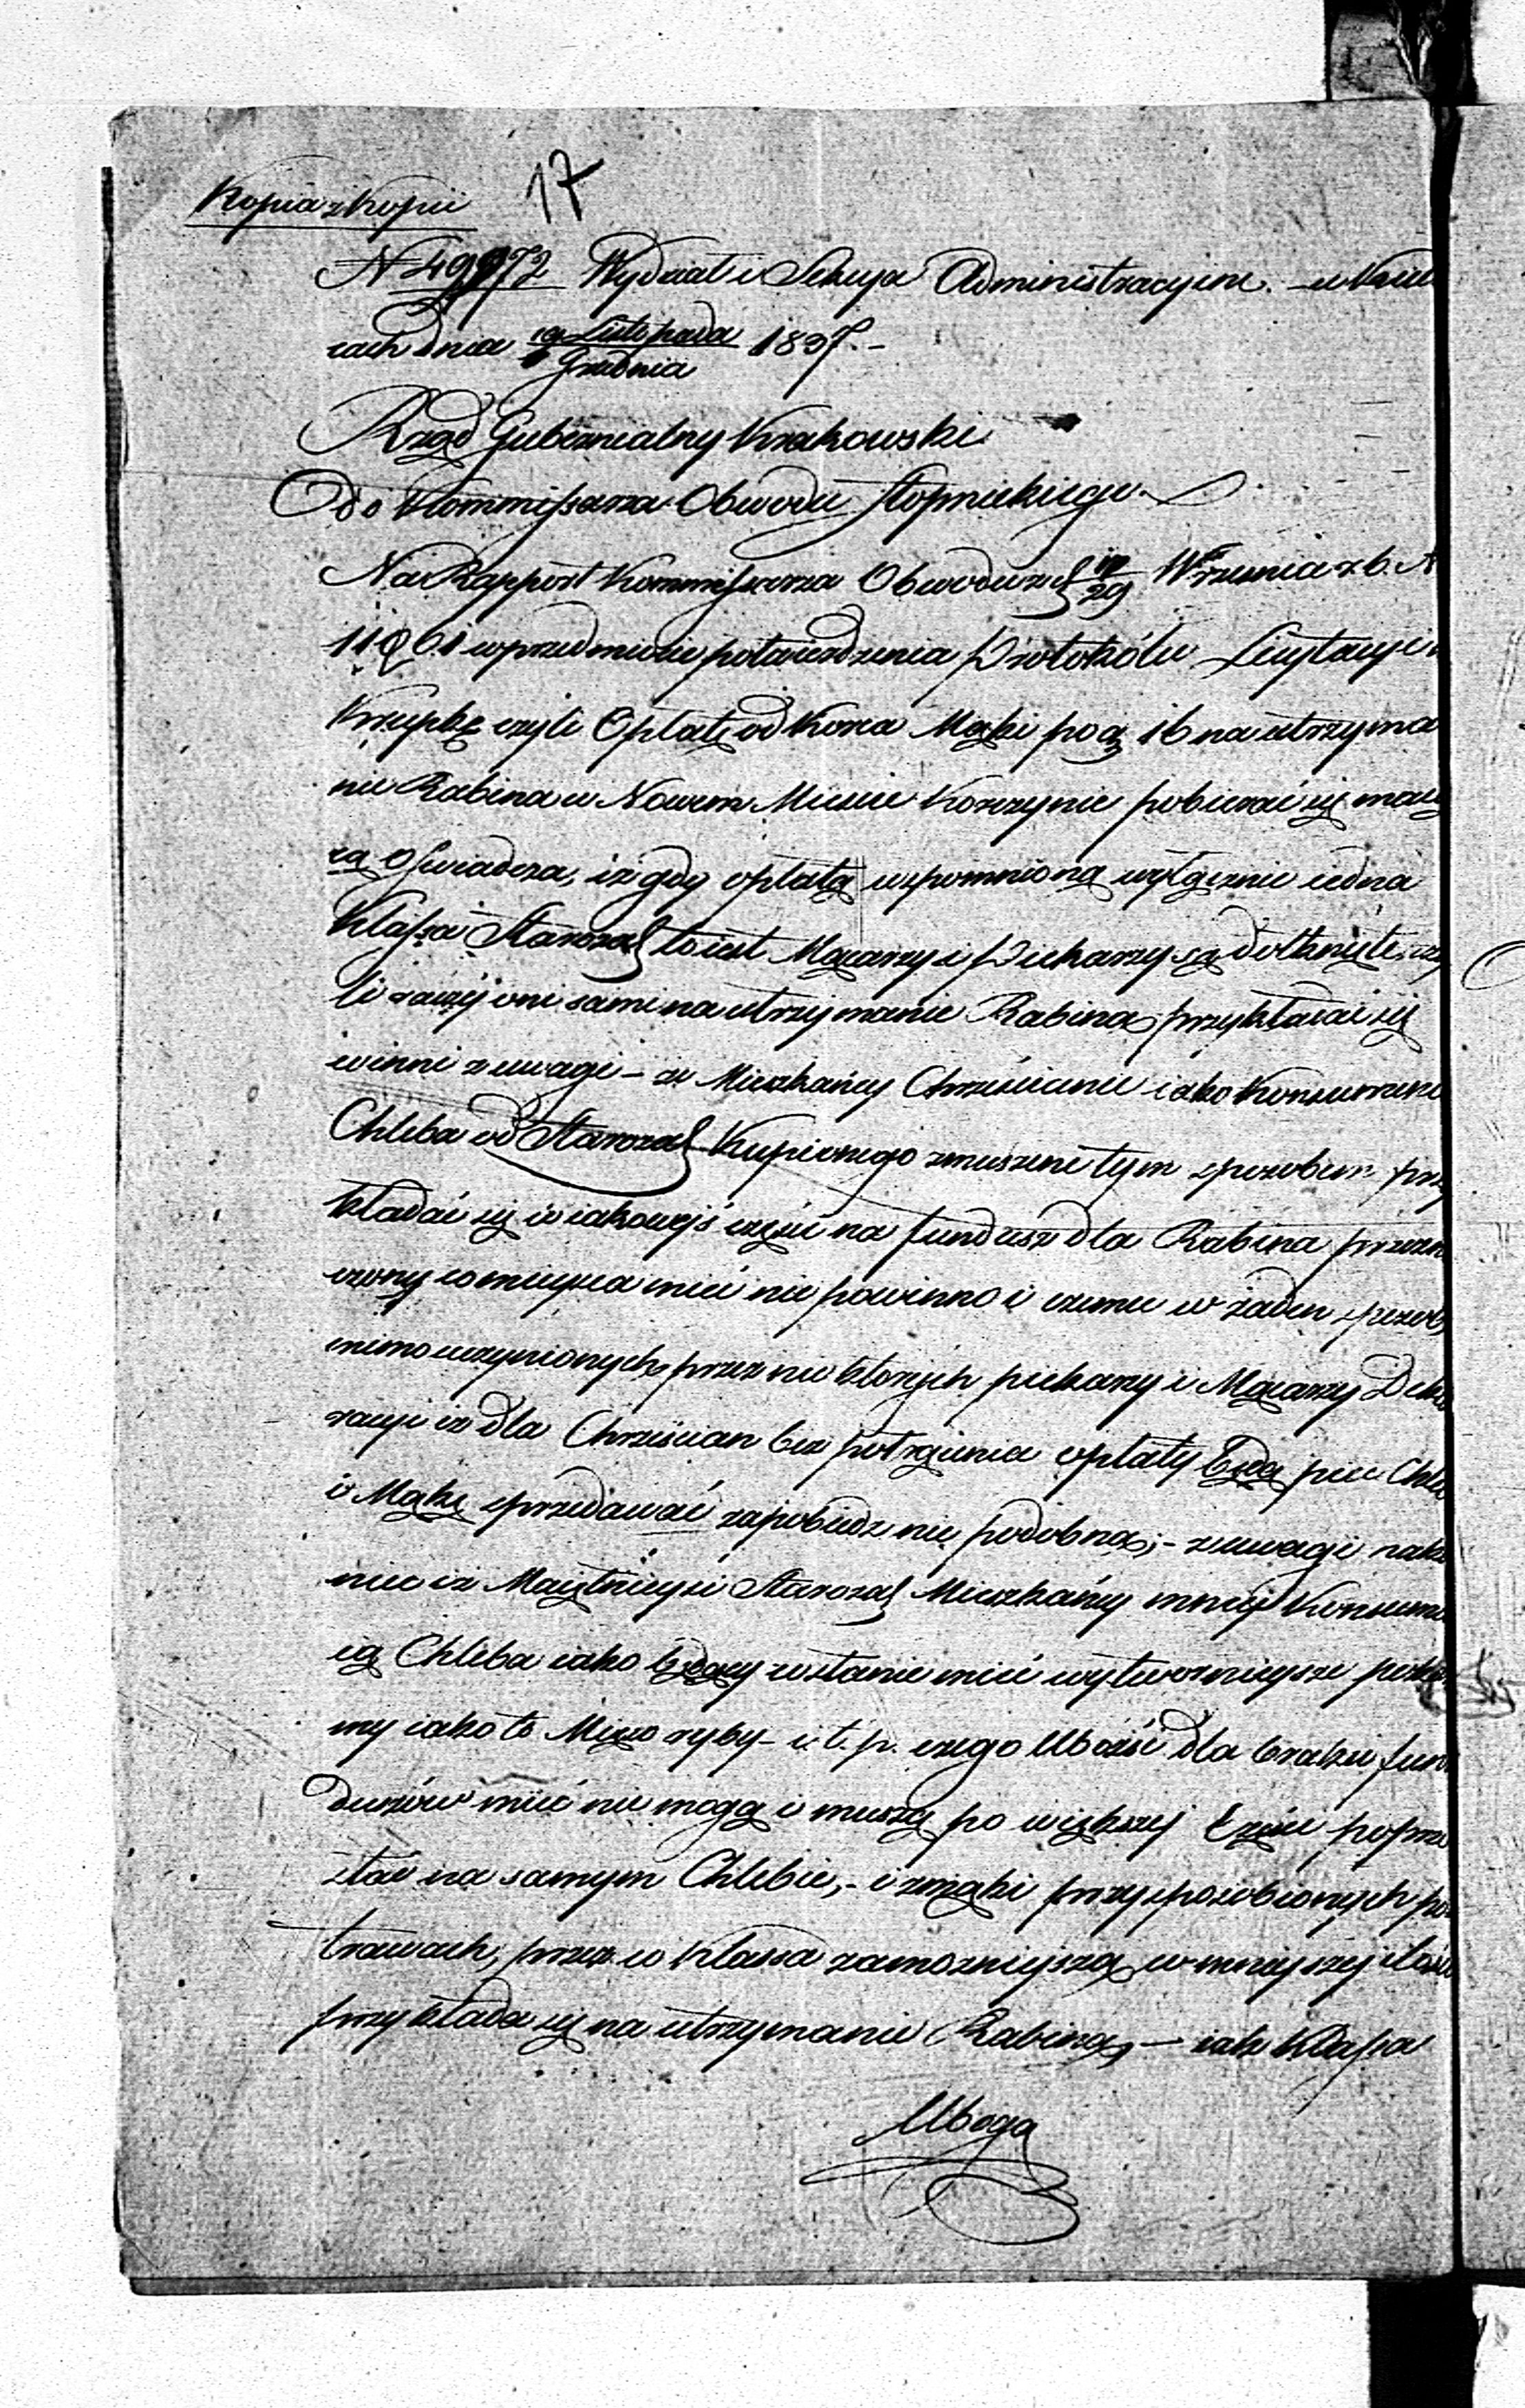 Kopia z Kopii
17
N 49972 Wydział i Sekcya Administracyine. - w Kiel
cach dnia 19 Listopada / 1 Grudnia 1837. -
Rząd Gubernialny Krakowski
Do Kommissarza Obwodu Stopnickiego.
Na Rapport Kommissarza Obwodu z d 17/29 Września r. b. N
11861 w przedmiocie potwierdzenia Protokółu Licytacyi
Krupkę czyli Opłatę od Korca Mąki po g 16 na utrzyma
nie Rabina w Nowem Mieście Korczynie pobierać się maią
cą Oświadcza, iż gdy opłatą wspomnioną wyłącznie iedna
Klassa Starozak to iest Mącarzy i Piekarzy są dotknięte, czy
li raczej oni sami na utrzymanie Rabina przykładać się
winni z uwagi - że Mieszkańcy Chrześcianie iako Konsumenci
Chleba od Starozak Kupionego zmuszeni tym sposobem przy
kładać się w iakowejś części na fundusz dla Rabina przezna
czony co mieysca mieć nie powinno i czemu w żaden sposób
mimo uczynionych przez nie których piekarzy i Mącarzy Dekla
racyi iż dla Chrześcian bez potrącenia opłaty będą piec Chleb
i Mąkę sprzedawać zapobiedz nie podobna; - z uwagi nako
niec iż Maiętnieysi Starozak Mieszkańcy mniej Konsumu
ią Chleba iako będący w stanie mieć wytwornieysze pokar
my iako to Mięso ryby - i t. p. czego Ubożsi dla braku fun
duszów mieć nie mogą i muszą po większej Części poprze
stać na samym Chlebie, - i z mąki przysposobionych po
trawach, przez co Klassa zamożniejsza w mniejszej ilości
przykłada się na utrzymanie Rabina, - iak Klassa
Uboga